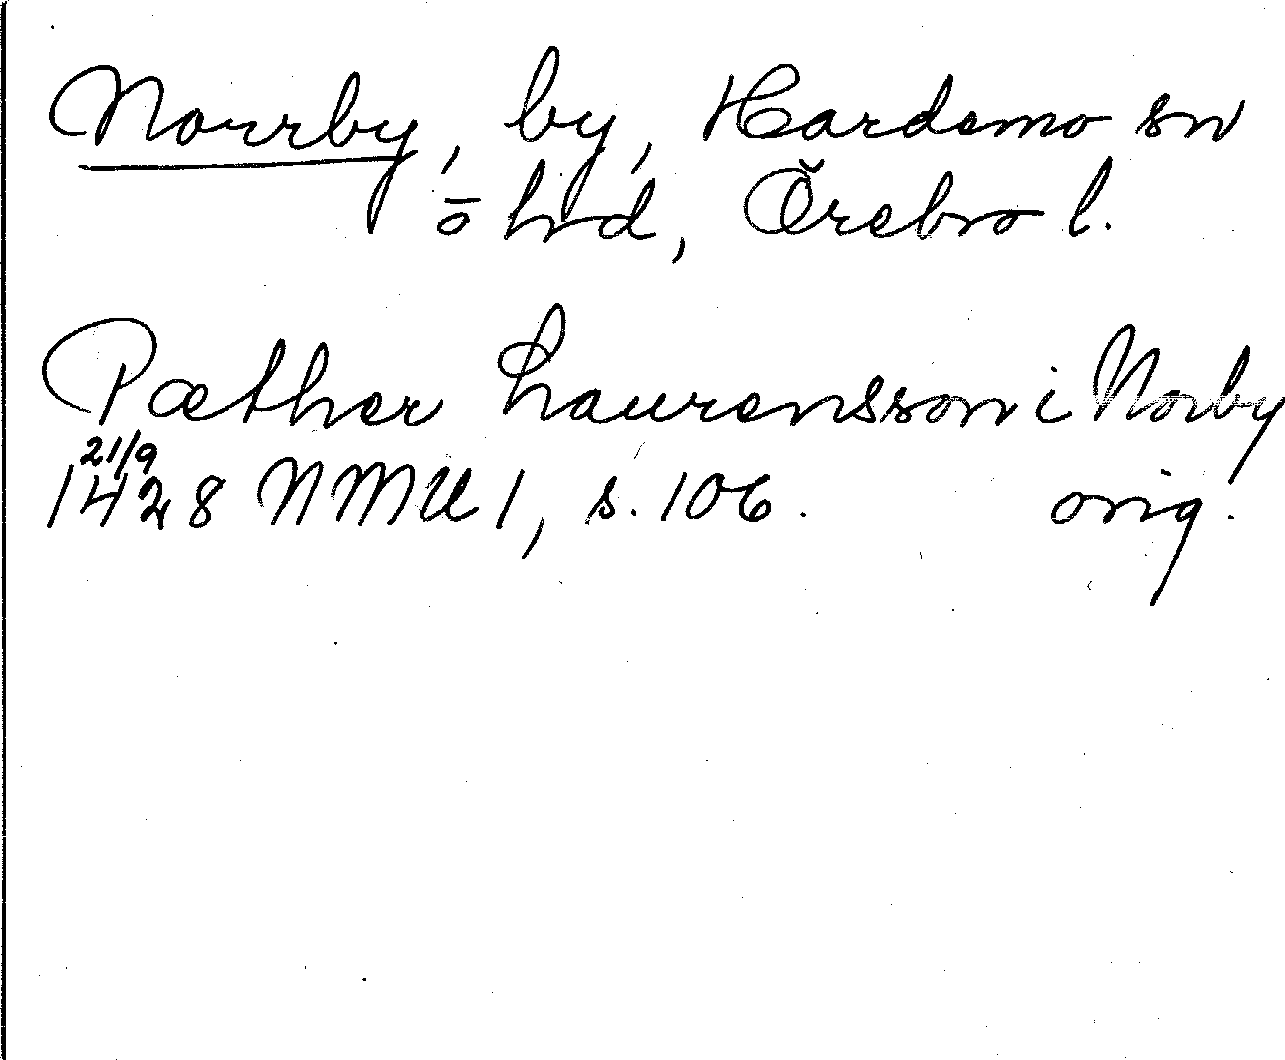 Norrby, by, Hardemo sn
ö hd, Örebro l.
Pæther Laurensson i Norby
21/9
1428 NMU 1, s. 106. orig.